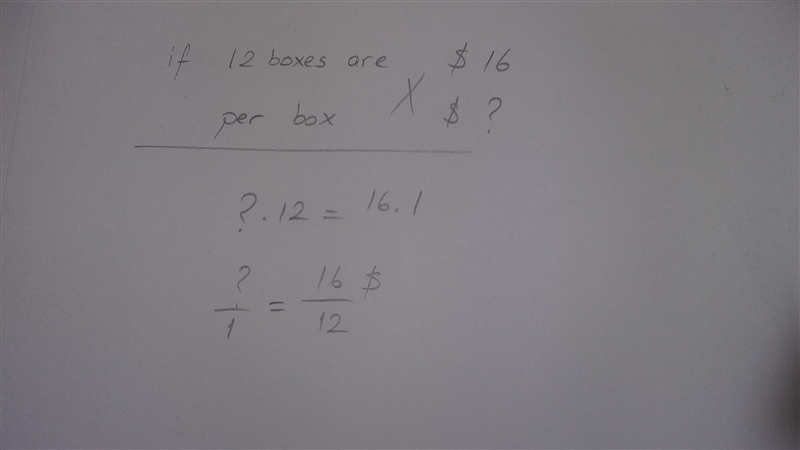 if 12 boxes are $ 16
per box X $ ?
? . 12 = 16 . 1
?/1 = 16/12 $